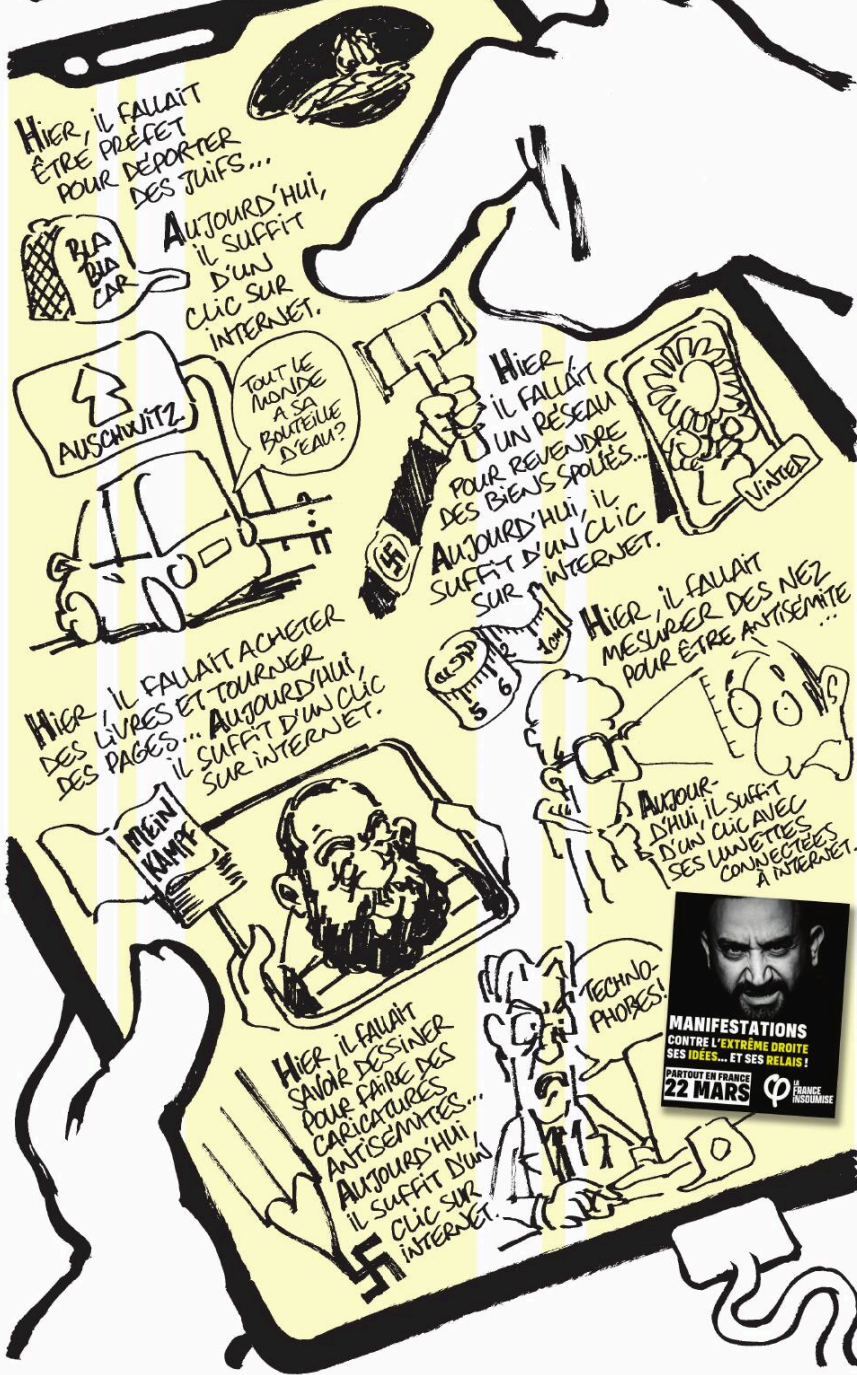 HIER, IL FALLAIT
ÊTRE PRÉFET
POUR DÉPORTER
DES JUIFS...
AUJOURD'HUI,
IL SUFFIT
D'UN
CLIC SUR
INTERNET.
BLA
BLA
CAR
AUSCHWITZ
TOUT LE
MONDE
A SA
BOUTEILLE
D'EAU?
HIER,
IL FALLAIT
UN RÉSEAU
POUR REVENDRE
DES BIENS SPOLIÉS...
AUJOURD'HUI, IL
SUFFIT D'UN CLIC
SUR INTERNET.
VINTED
HIER, IL FALLAIT
MESURER DES NEZ
POUR ÊTRE ANTISÉMITE
...
1CM
2
5
6
AUJOUR-
D'HUI, IL SUFFIT
D'UN CLIC AVEC
SES LUNETTES
CONNECTÉES
À INTERNET.
HIER, IL FALLAIT ACHETER
DES LIVRES ET TOURNER
DES PAGES... AUJOURD'HUI,
IL SUFFIT D'UN CLIC
SUR INTERNET.
MEIN
KAMPF
HIER, IL FALLAIT
SAVOIR DESSINER
POUR FAIRE DES
CARICATURES
ANTISÉMITES...
AUJOURD'HUI
IL SUFFIT D'UN
CLIC SUR
INTERNET.
TECHNO-
PHOBES!
MANIFESTATIONS
CONTRE L'EXTRÊME DROITE
SES IDÉES... ET SES RELAIS !
PARTOUT EN FRANCE
22 MARS
LA
FRANCE
INSOUMISE